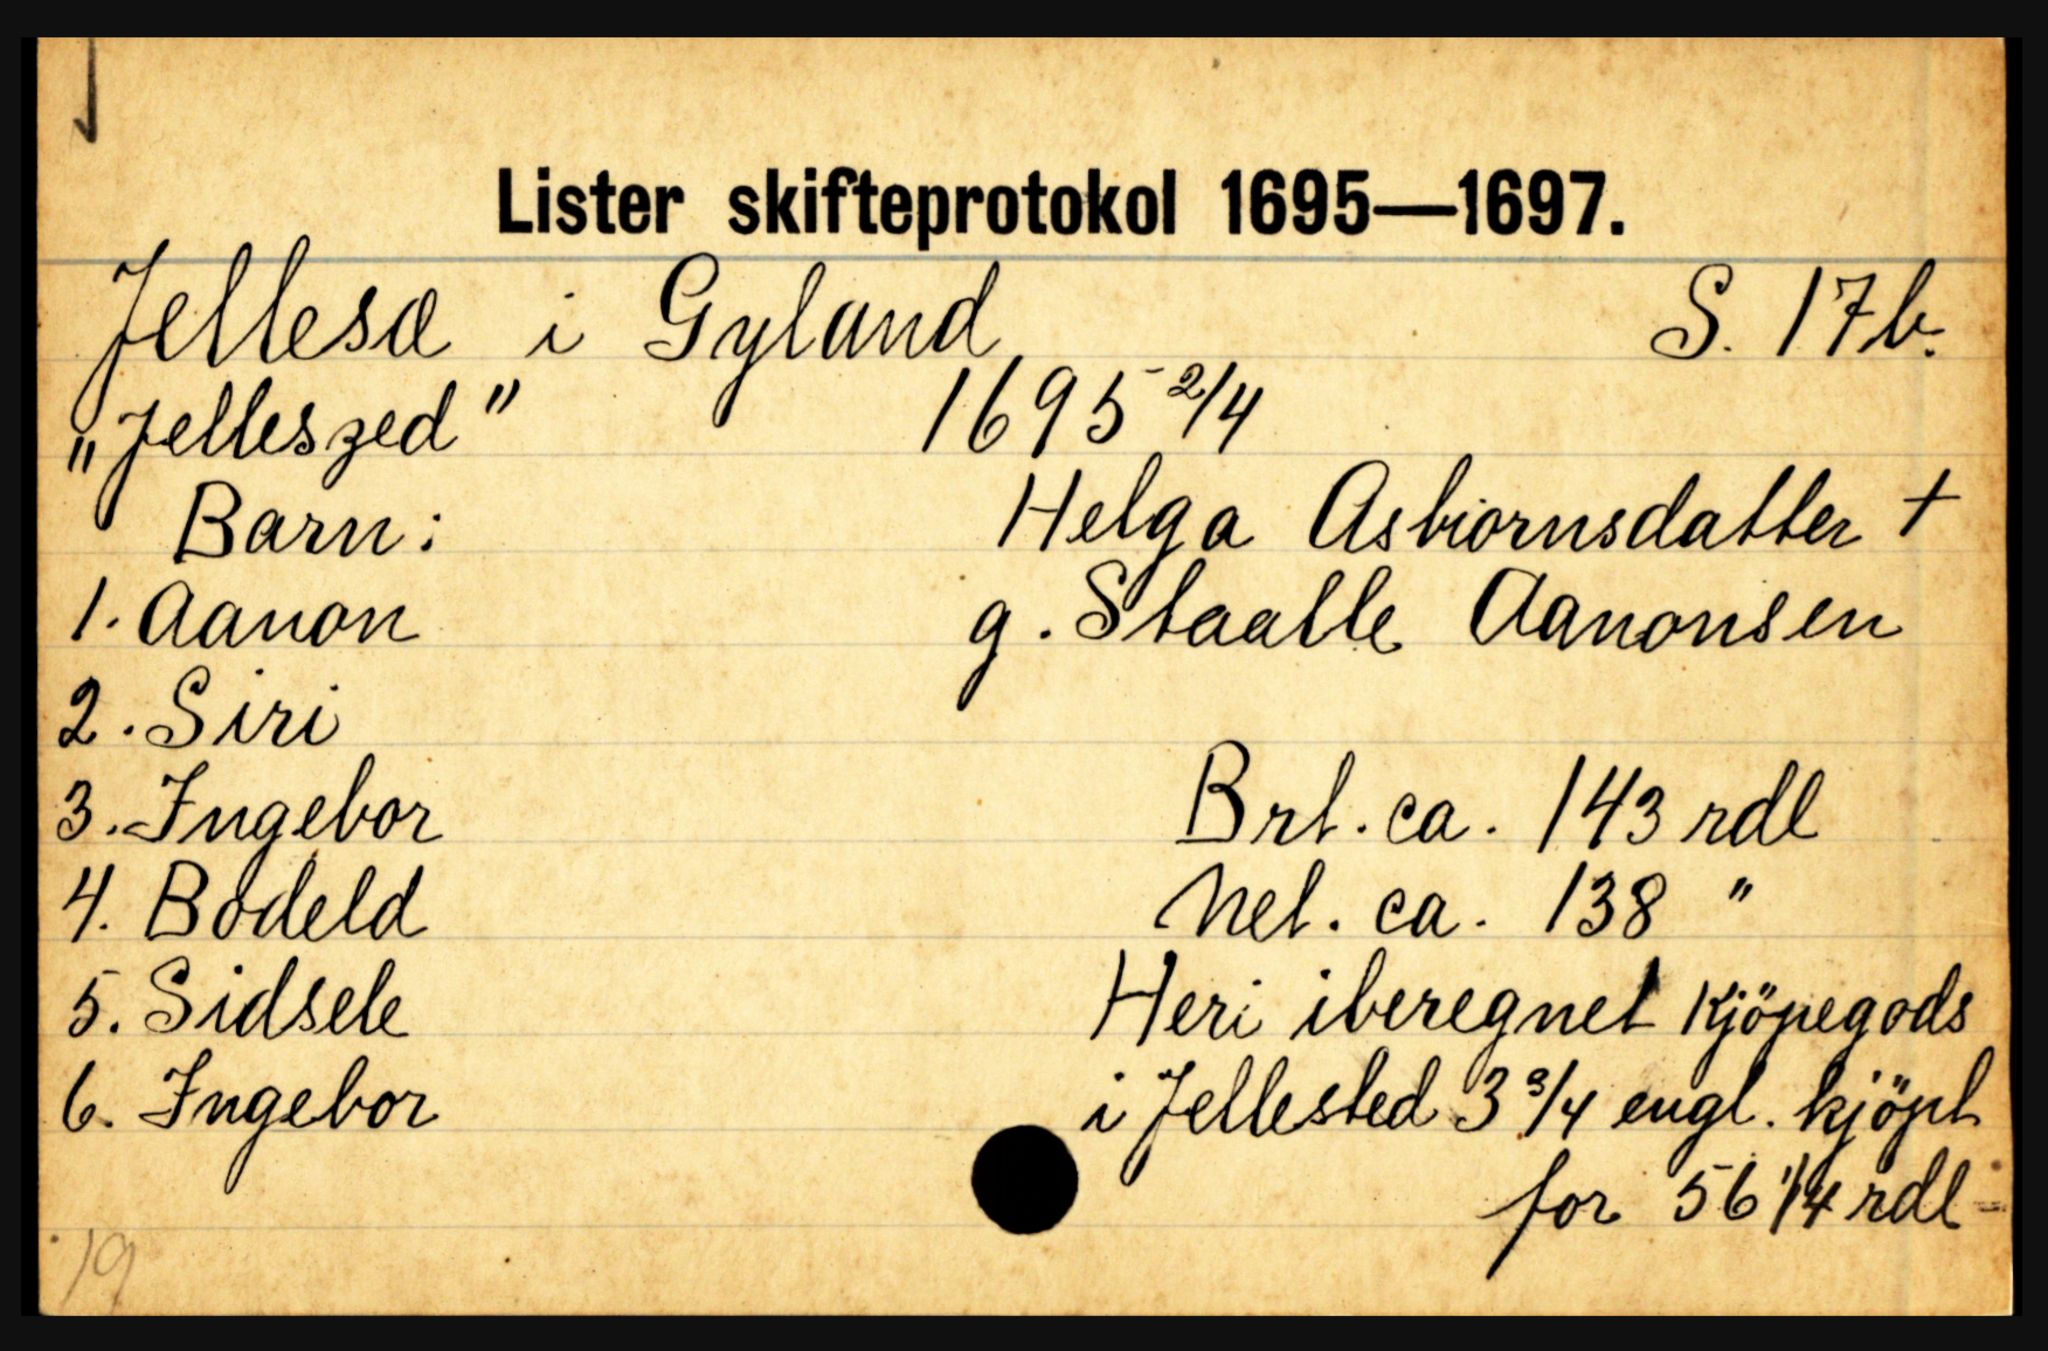 Lister skifteprotokol 1695—1697.
Jellesæ i Gyland S. 17b.
"Jelleszed" 1695 2/4
Barn: Helga Asbiornsdatter +
1. Aanon g. Staalle Aanonsen
2. Siri
3. Ingebor Brt. ca. 143 rdl
4. Bodeld Net. ca. 138 "
5. Sidsele Heri iberegnet kjöpegods
6. Ingebor i Jellested 3 3/4 engl. kjöpt
for 56 1/4 rdl
19